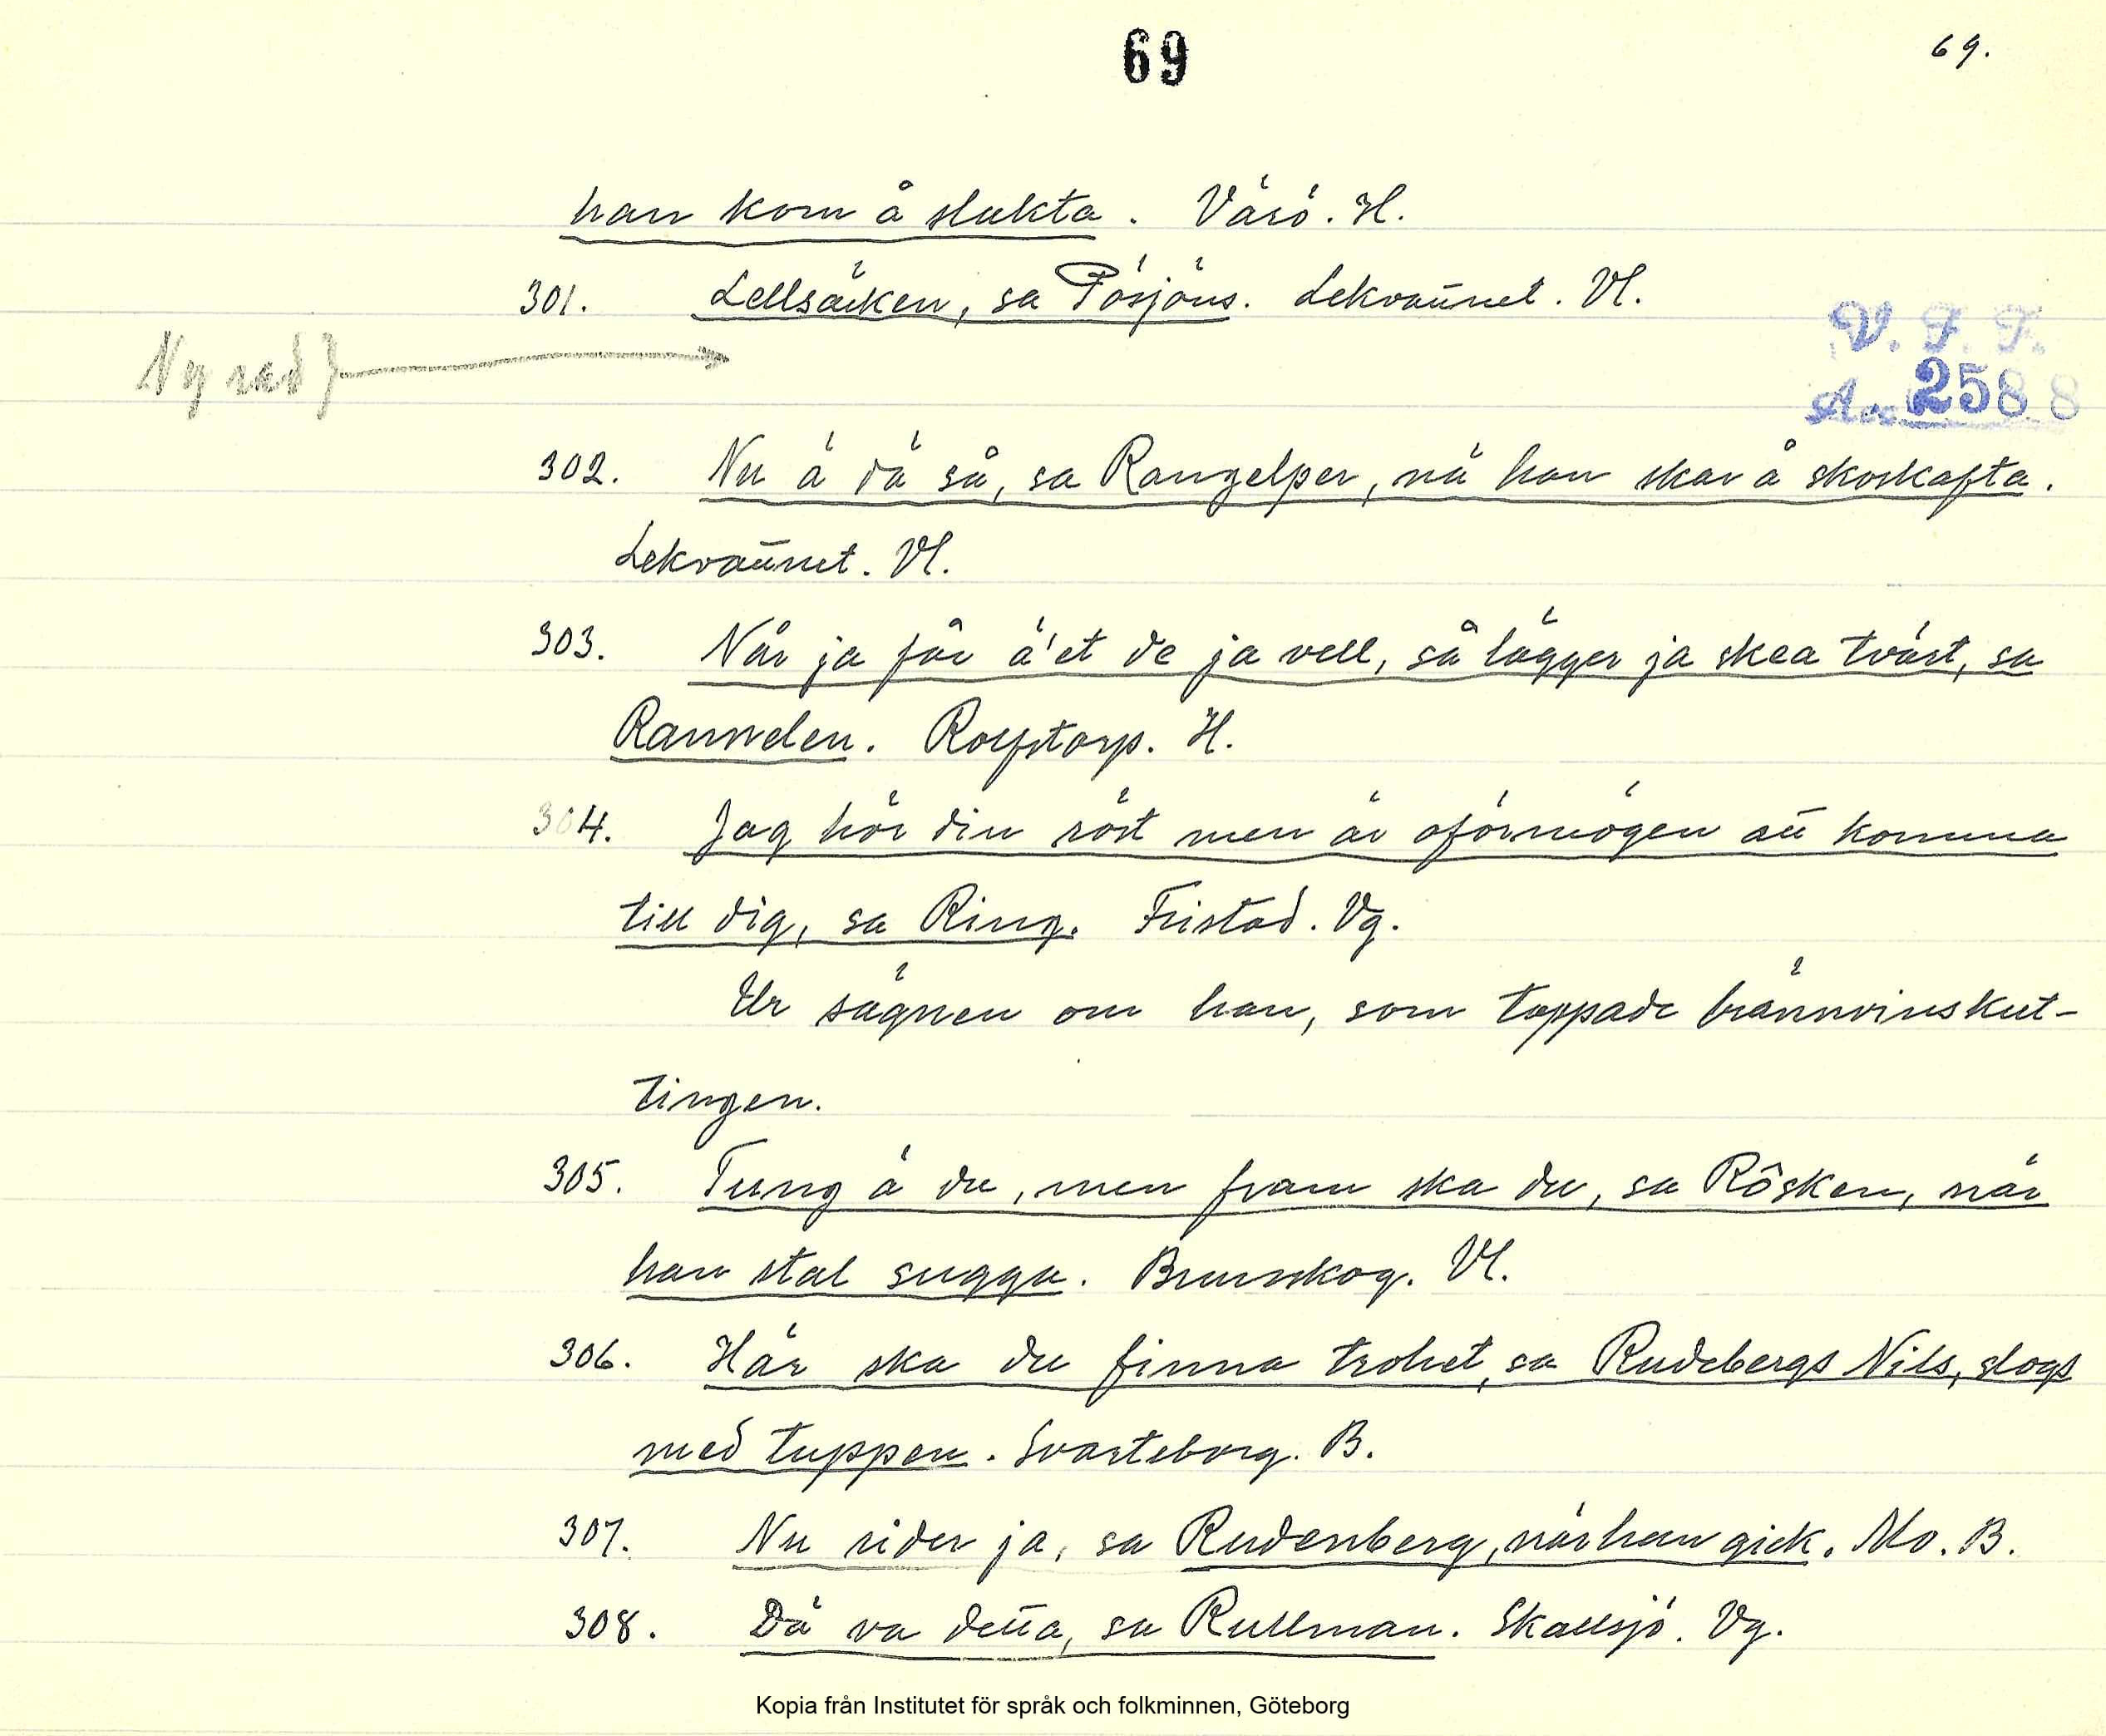 69
69.
han kom å slukta. Värö. H.
301. Lellsäcken, sa Pösjöns. Lekvattnet. Vl.
Ny rad
V. F. F.
Acc 2588
302. Nu ä dä så, sa Rangelper, nä han skar å skoskafta.
Lekvattnet. Vl.
303. Når ja får ä'et de ja vell, så lägger ja skea tvärt, sa
Rannelen. Rolfstorp. H.
304. Jag hör din röst men är oförmögen att komma
till dig, sa Ring. Fristad. Vg.
Ur sägnen om han, som tappade brännvinskut-
tingen.
305. Tung ä du, men fram ska du, sa Rôsken, när
han stal sugga. Brunskog. Vl.
306. Här ska du finna trohet, sa Rudebergs Nils, slogs
med tuppen. Svarteborg. B.
307. Nu rider ja, sa Rudenberg, när han gick. Mo. B.
308. Dä va detta, sa Rullman. Skallsjö. Vg.
Kopia från Institutet för språk och folkminnen, Göteborg